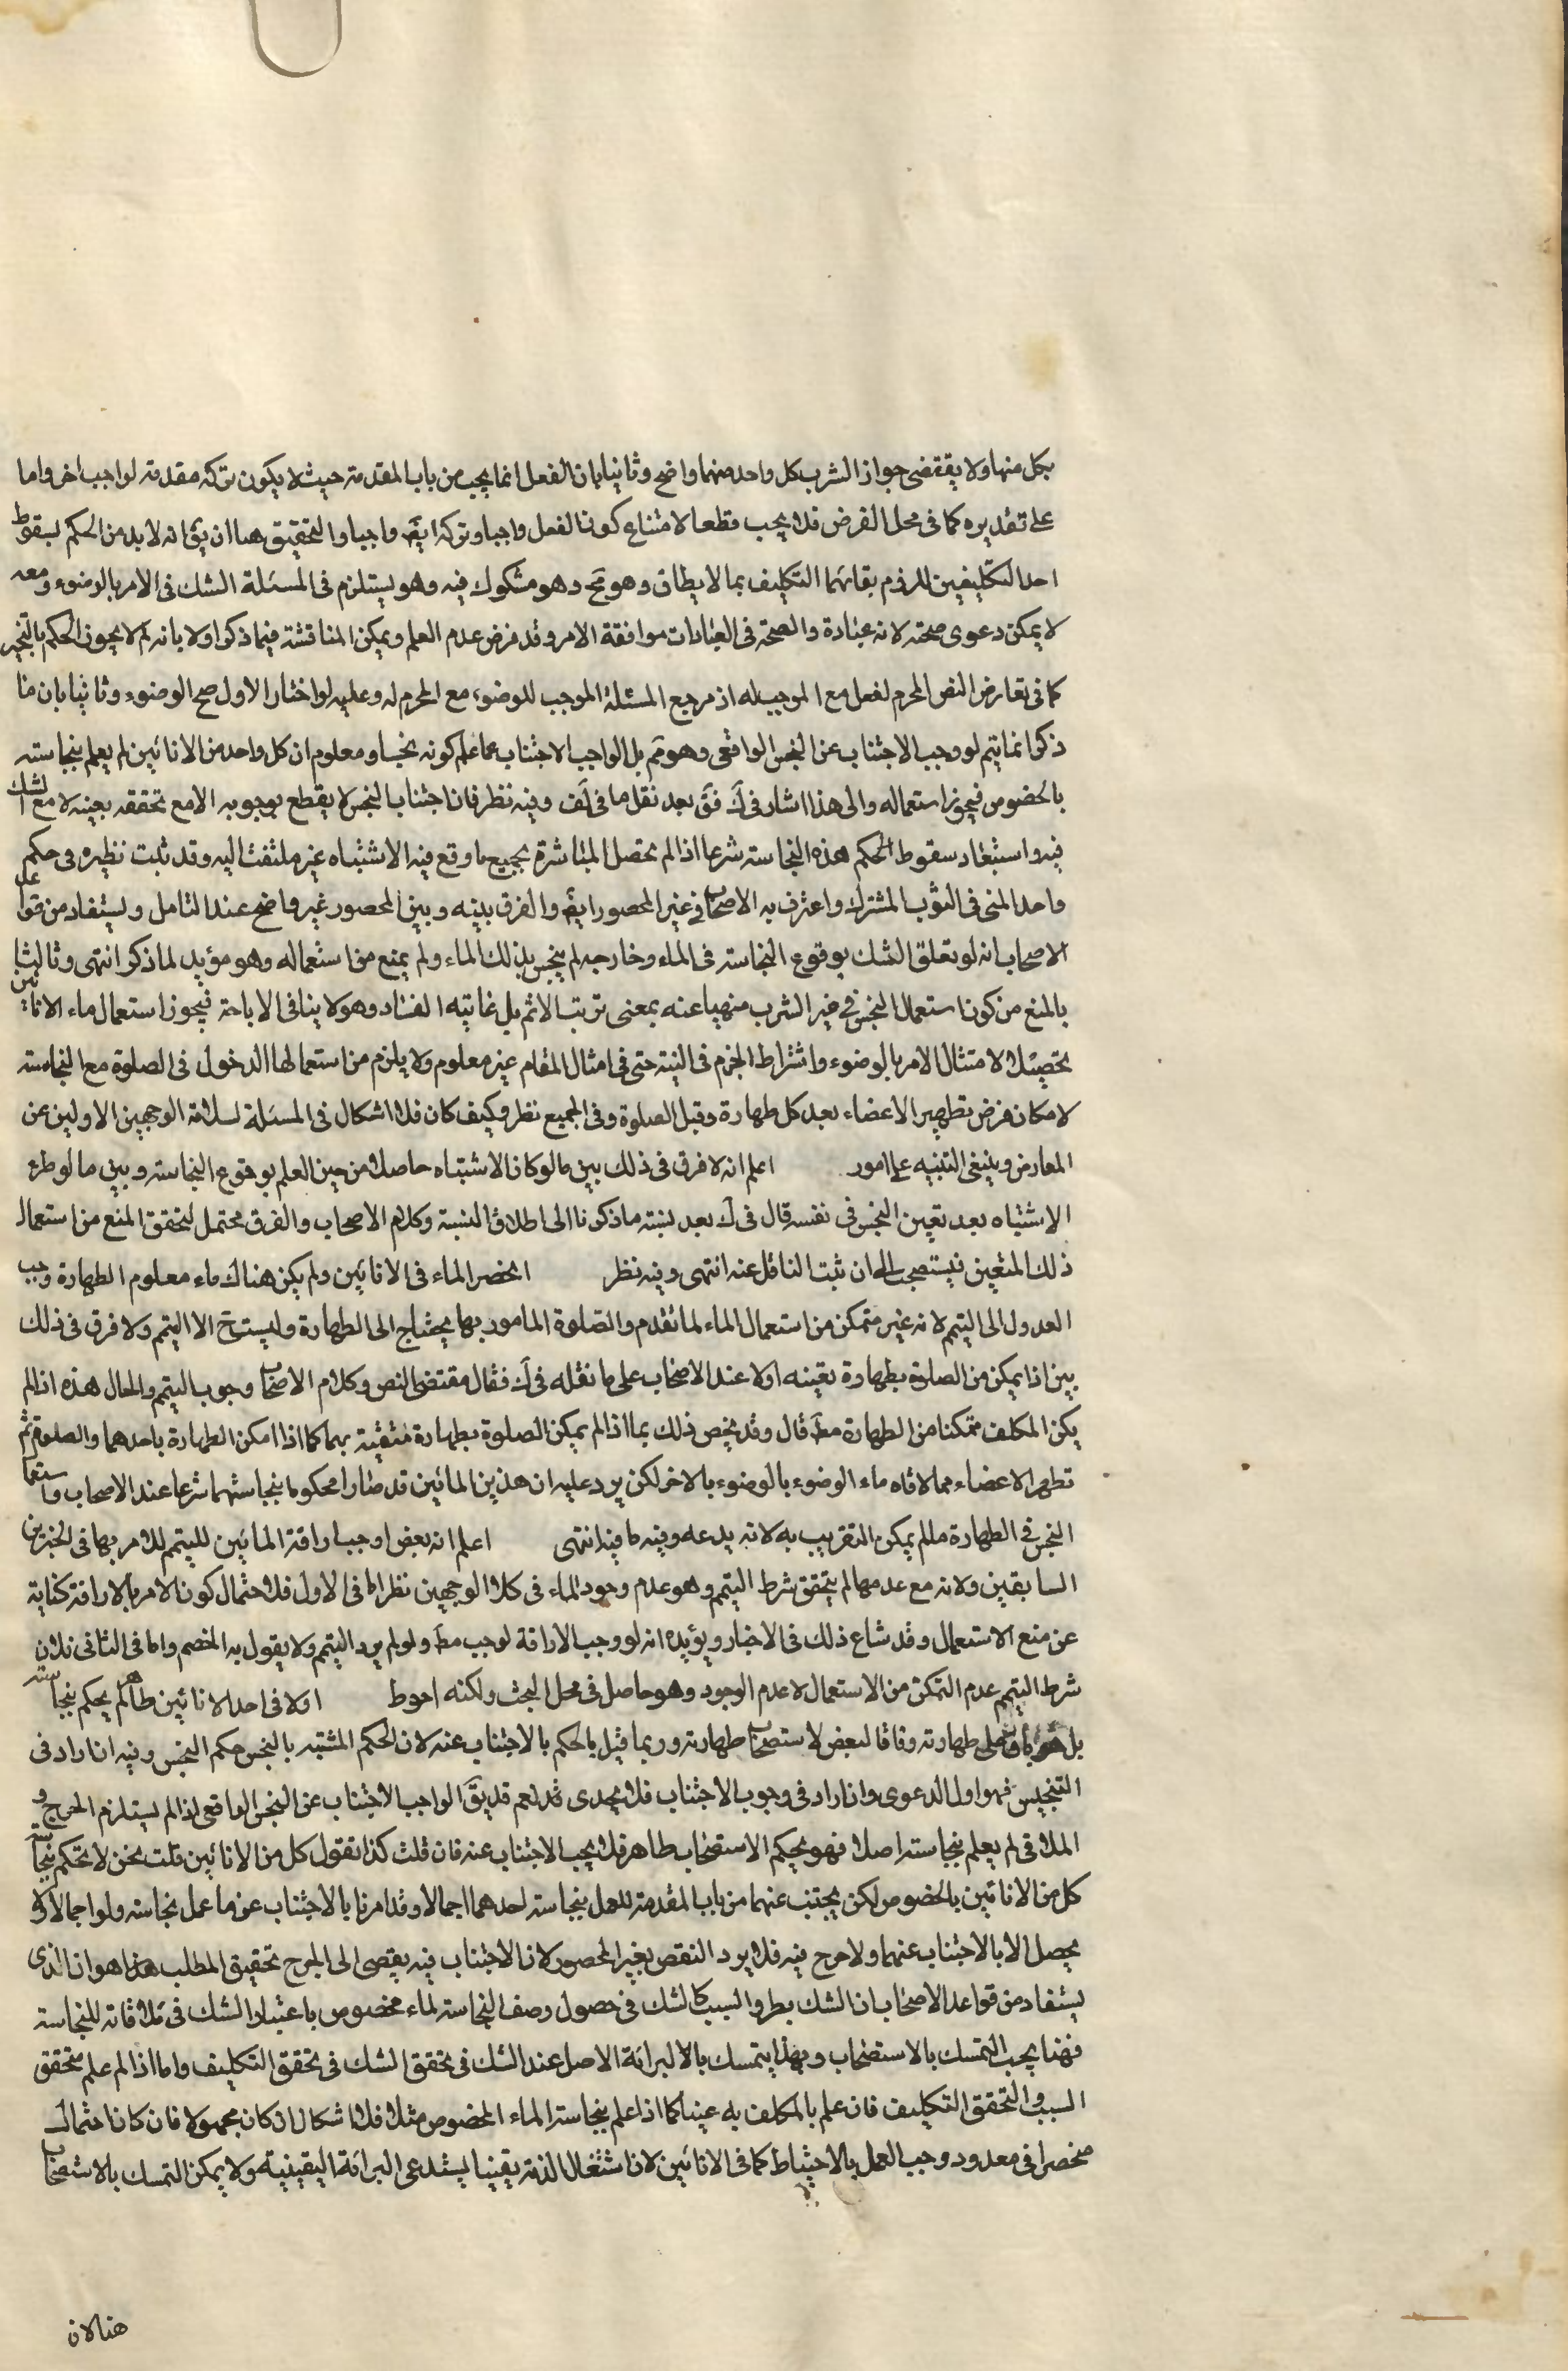 بكل منها ولا يقتضى جواز الشرب كل واحد منهما واضح وثانيا بان الفعل انما يجب من باب المقدمة حيث لا يكون تركه مقدمة لواجب اخر واما
على تقديره كما فى محل الفرض فلا يجب قطعا لامتناع كون الفعل واجبا وتركه ايضَ واجبا والتحقيق هنا ان يقَ انه لا بد من الحكم بسقوط
احد التكليفين للزوم بقائهما التكليف بما لا يطاق وهو مح وهو مشكوك فيه وهو يستلزم فى المسئلة الشك فى الامر بالوضوء ومعه
لا يمكن دعوى صحته لانه عبادة والصحة فى العبادات موافقة الامر وقد فرض عدم العلم ويمكن المناقشة فيما ذكر اولا بانه لم لا يجوز الحكم بالتخيير
كما فى تعارض النص المحرم لفعل مع الموجب له اذ مرجع المسئلة الموجب للوضوء مع المحرم له وعليه لو اختار الاول صح الوضوء وثانيا بان ما
ذكر انما يتم لو وجب الاجتناب عن النجس الواقعى وهو مم بل الواجب الاجتناب عما علم كونه نجسا ومعلوم ان كل واحد من الانائين لم يعلم بنجاسته
بالخصوص فيجوز استعماله والى هذا اشار فى ك فقَ بعد نقل ما فى لف وفيه نظر فان اجتناب النجس لا يقطع بوجوبه الا مع تحققه بعينه لا مع الشك
فيه واستبعاد سقوط الحكم هذه النجاسته شرعا اذا لم تحصل المباشرة بجميع ما وقع فيه الاشتباه غير ملتفت اليه وقد ثبت نظيره فى حكم
واحد المنى فى الثوب المشترك واعترف به الاصحاب فى غير المحصور ايضَ والفرق بينه وبين المحصور غير واضح عند التامل ويستفاد من قواعد
الاصحاب انه لو تعلق الشك بوقوع النجاسته فى الماء وخارجه لم ينجس بذلك الماء ولم يمنع من استعماله وهو مؤيد لما ذكر انتهى وثالثا
بالمنع من كون استعمال النجس فى غير الشرب منهيا عنه بمعنى ترتب الاثم بل غايته الفساد وهو لا ينافى الاباحة فيجوز استعمال ماء الانائين
تحصيلا لامتثال الامر بالوضوء واشتراط الجزم فى النية حتى فى امثال المقام غير معلوم ولا يلزم من استعمالها الدخول فى الصلوة مع النجاسته
لامكان فرض تطهير الاعضاء بعد كل طهارة وقبل الصلوة وفى الجميع نظر وكيف كان فلا اشكال فى المسئلة لسلامة الوجهين الاولين عن
المعارض وينبغى التنبيه على امور اعلم انه لا فرق فى ذلك بين ما لو كان الاشتباه حاصلا من حين العلم بوقوع النجاسته وبين ما لو طرء
الاشتباه بعد تعين النجس فى نفسه قال فى ك بعد نسبته ما ذكرنا الى اطلاق النسبة وكلام الاصحاب والفرق محتمل لتحقق المنع من استعمال
ذلك المتعين فيستصحب الى ان ثبت الناقل عنه انتهى وفيه نظر انحصر الماء فى الانائين ولم يكن هناك ماء معلوم الطهارة وجب
العدول الى التيمم لانه غير متمكن من استعمال الماء لما تقدم والصلوة المامور بها يحتاج الى الطهارة وليست ح الا التيمم ولا فرق فى ذلك
بين اذا يمكن من الصلوة بطهارة بقينه اولا عند الاصحاب على ما نقله فى ك فقال مقتضى النص وكلام الاصحاب وجوب التيمم والحال هذه اذا لم
يكن المكلف متمكنا من الطهارة مطَ قال وقد يخص ذلك بما اذا لم يمكن الصلوة بطهارة متيقنة بهما كما اذا امكن الطهارة باحدهما والصلوة ثم
تطهر الاعضاء مما لاقاه ماء الوضوء بالوضوء بالاخر لكن يرد عليه ان هذين المائين قد صارا محكوما بنجاستهما شرعا عند الاصحاب واستعما
النجس فى الطهارة مما لم يمكن التقريب به لانه بدعه وفيه ما فيه انتهى اعلم انه بعض اوجب اراقة المائين للتيمم للامر بها فى الخبرين
السابقين ولانه مع عدمها لم يتحقق شرط التيمم وهو عدم وجود الماء فى كلا الوجهين نظر اما فى الاول فلاحتمال كون الامر بالاراقة كناية
عن منع الاستعمال وقد شاع ذلك فى الاخبار ويؤيده انه لو وجب الاراقة لوجب مطَ ولو لم يرد التيمم ولا يقول به الخصم واما فى الثانى فلان
شرط التيمم عدم التمكن من الاستعمال لا عدم الوجود وهو حاصل فى محل البحث ولكنه احوط اولاقى احد الانائين طاهر لم يحكم بنجاسته
بل هو باق على طهارته وفاقا لبعض لاستصحاب طهارته وربما قيل بالحكم بالاجتناب عنه لان لحكم المشتبه بالنجس حكم النجس وفيه ان اراد فى
التنجيس فهو اول الدعوى وان اراد فى وجوب الاجتناب فلا يجدى نعم قد يقَ الواجب الاجتناب عن النجس الواقعى اذا لم يستلزم الحرج و
الملاقى لم يعلم بنجاسته اصلا فهو بحكم الاستصحاب طاهر فلا يجب الاجتناب عنه فان قلت كذا نقول كل من الانائين قلت نحن لا نحكم بنجاسة
كل من الانائين بالخصوص لكن يجتنب عنهما من باب المقدمة للعمل بنجاسته احدهما اجمالا وقد امرنا بالاجتناب عن ما عمل نجاسته ولو اجمالا ولا
يحصل الا بالاجتناب عنهما ولا حرج فيه فلا يرد النقص بغير المحصور لان الاجتناب فيه يفضى الى الحرج تحقيق المطلب هذا هو ان الذى
يستفاد من قواعد الاصحاب ان الشك بطرو السبب كالشك فى حصول وصف النجاسته لماء مخصوص باعتبار الشك فى ملاقاته للنجاسته
فهنا يجب التمسك بالاستصحاب وبهذا يتمسك بالا البرائة الاصل عند الشك فى تحقق الشك فى تحقق التكليف واما اذا لم علم متحقق
السبب والتحقق التكليف فان علم بالمكلف به عينا كما اذا علم بنجاسته الماء المخصوص مثلا فلا اشكال ان كان مجهولا فان كان احتمال
منحصرا فى معدود وجب العمل بالاحتياط كما فى الانائين لان اشتغال الذمة يقينيا يستدعى البرائة اليقينية ولا يمكن التمسك بالاستصحاب
هنا لان